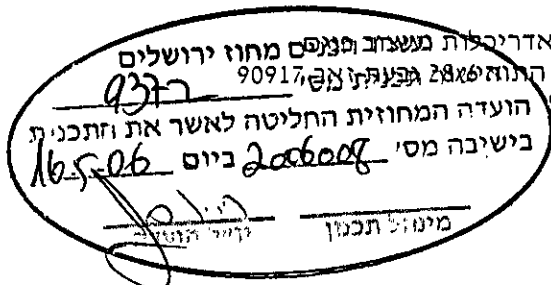 אדריכלות מחוז ירושלים
גבעת זאב 90917 9372
הועדה המחוזית החליטה לאשר את התכנית
בישיבה מס' 2006008 ביום 16-5-06
מינהל תכנון יו"ר הועדה